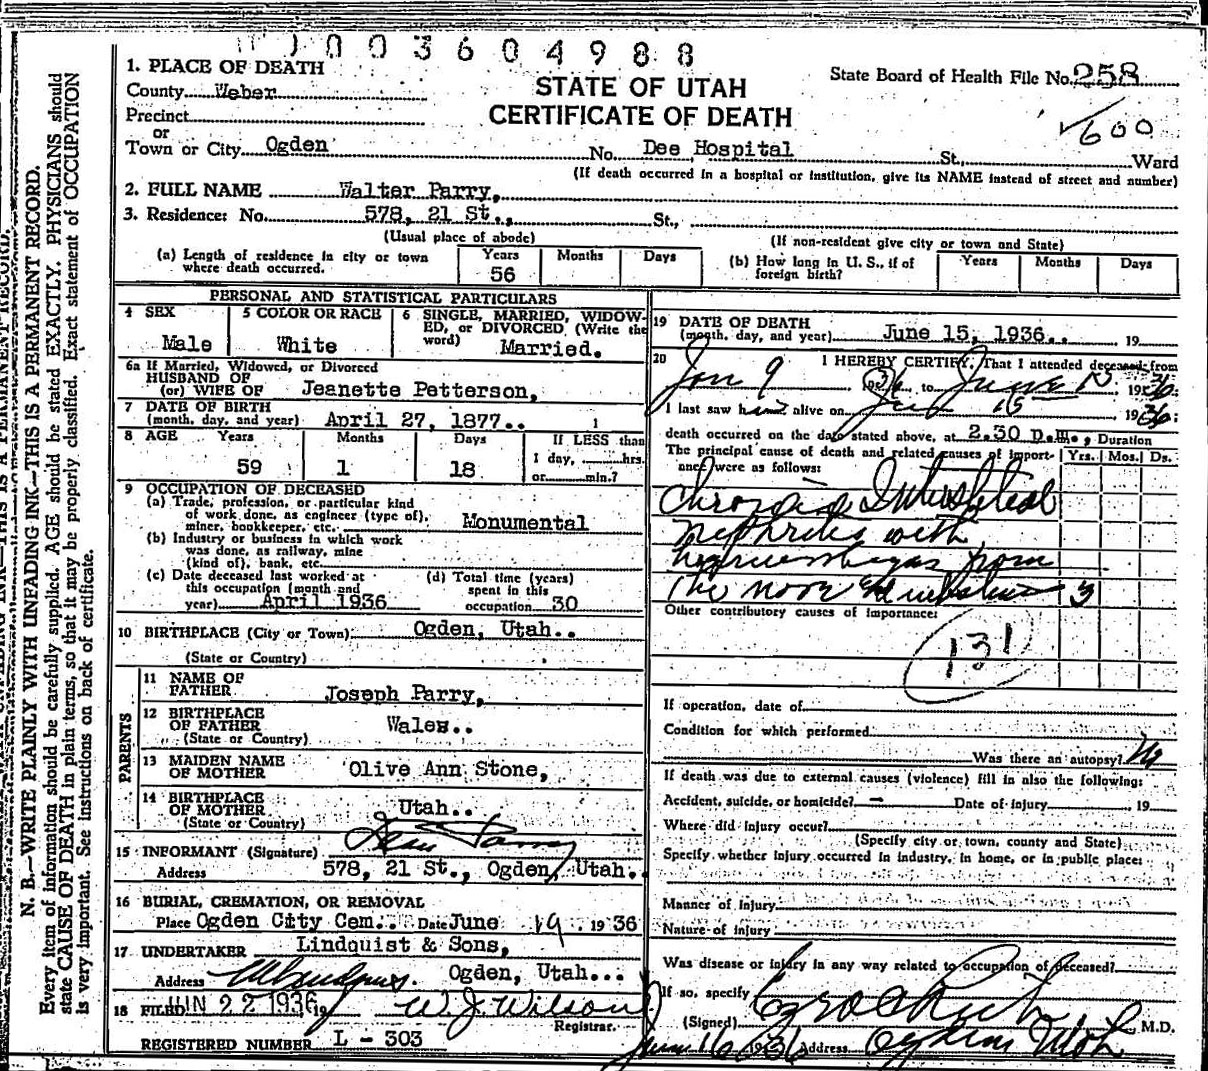 003604988
1. PLACE OF DEATH
STATE OF UTAH
State Board of Health File No. 258
County Weber
CERTIFICATE OF DEATH
Precinct
or
600
Town or City Ogden No. Dee Hospital St., Ward
(If death occurred in a hospital or institution, give its NAME instead of street and number)
2. FULL NAME Walter Parry,
3. Residence: No. 578, 21 St., St.,
(Usual place of abode)
(If non-resident give city or town and State)
(a) Length of residence in city or town where death occurred. Years 56 Months Days
(b) How long in U. S., if of foreign birth? Years Months Days
PERSONAL AND STATISTICAL PARTICULARS
4 SEX Male
5 COLOR OR RACE White
6 SINGLE, MARRIED, WIDOWED, or DIVORCED (Write the word) Married.
6a If Married, Widowed, or Divorced
HUSBAND OF
(or) WIFE OF Jeanette Petterson,
7 DATE OF BIRTH
(month, day, and year) April 27, 1877..
8 AGE Years 59 Months 1 Days 18
If LESS than 1 day, hrs. or min.?
9 OCCUPATION OF DECEASED
(a) Trade, profession, or particular kind
of work done, as engineer (type of),
miner, bookkeeper, etc. Monumental
(b) Industry or business in which work
was done, as railway, mine
(kind of), bank, etc.
(c) Date deceased last worked at
this occupation (month and
year) April 1936
(d) Total time (years)
spent in this
occupation 30
10 BIRTHPLACE (City or Town) Ogden, Utah..
(State or Country)
PARENTS
11 NAME OF
FATHER Joseph Parry,
12 BIRTHPLACE
OF FATHER Wales..
(State or Country)
13 MAIDEN NAME
OF MOTHER Olive Ann Stone,
14 BIRTHPLACE
OF MOTHER Utah..
(State or Country)
15 INFORMANT (Signature) Parry
Address 578, 21 St., Ogden, Utah.
16 BURIAL, CREMATION, OR REMOVAL
Place Ogden City Cem.. Date June 19 1936
17 UNDERTAKER Lindquist & Sons,
Address Ogden, Utah...
18 FILED JUN 22 1936 19 W. J. Wilson
Registrar.
REGISTERED NUMBER L - 303
19 DATE OF DEATH
(month, day, and year) June 15, 1936.. 19
20 I HEREBY CERTIFY, That I attended deceased from
Jan 9 1936 to June 15 1936
I last saw him alive on 15 1936:
death occurred on the date stated above, at 2.30 p.m.,
The principal cause of death and related causes of importance were as follows:
Duration
Yrs. Mos. Ds.
Chronic Interstitial
Nephritis with
from
the nose and 3
Other contributory causes of importance:
131
If operation, date of
Condition for which performed
Was there an autopsy? No
If death was due to external causes (violence) fill in also the following:
Accident, suicide, or homicide? — Date of injury 19
Where did injury occur?
(Specify city or town, county and State)
Specify whether injury occurred in industry, in home, or in public place:
Manner of injury
Nature of injury
Was disease or injury in any way related to occupation of deceased?
If so, specify
(Signed) Ezra C Rich M.D.
June 16 1936 Address Ogden Utah
N. B.—WRITE PLAINLY WITH UNFADING INK—THIS IS A PERMANENT RECORD.
Every item of information should be carefully supplied. AGE should be stated EXACTLY. PHYSICIANS should
state CAUSE OF DEATH in plain terms, so that it may be properly classified. Exact statement of OCCUPATION
is very important. See instructions on back of certificate.